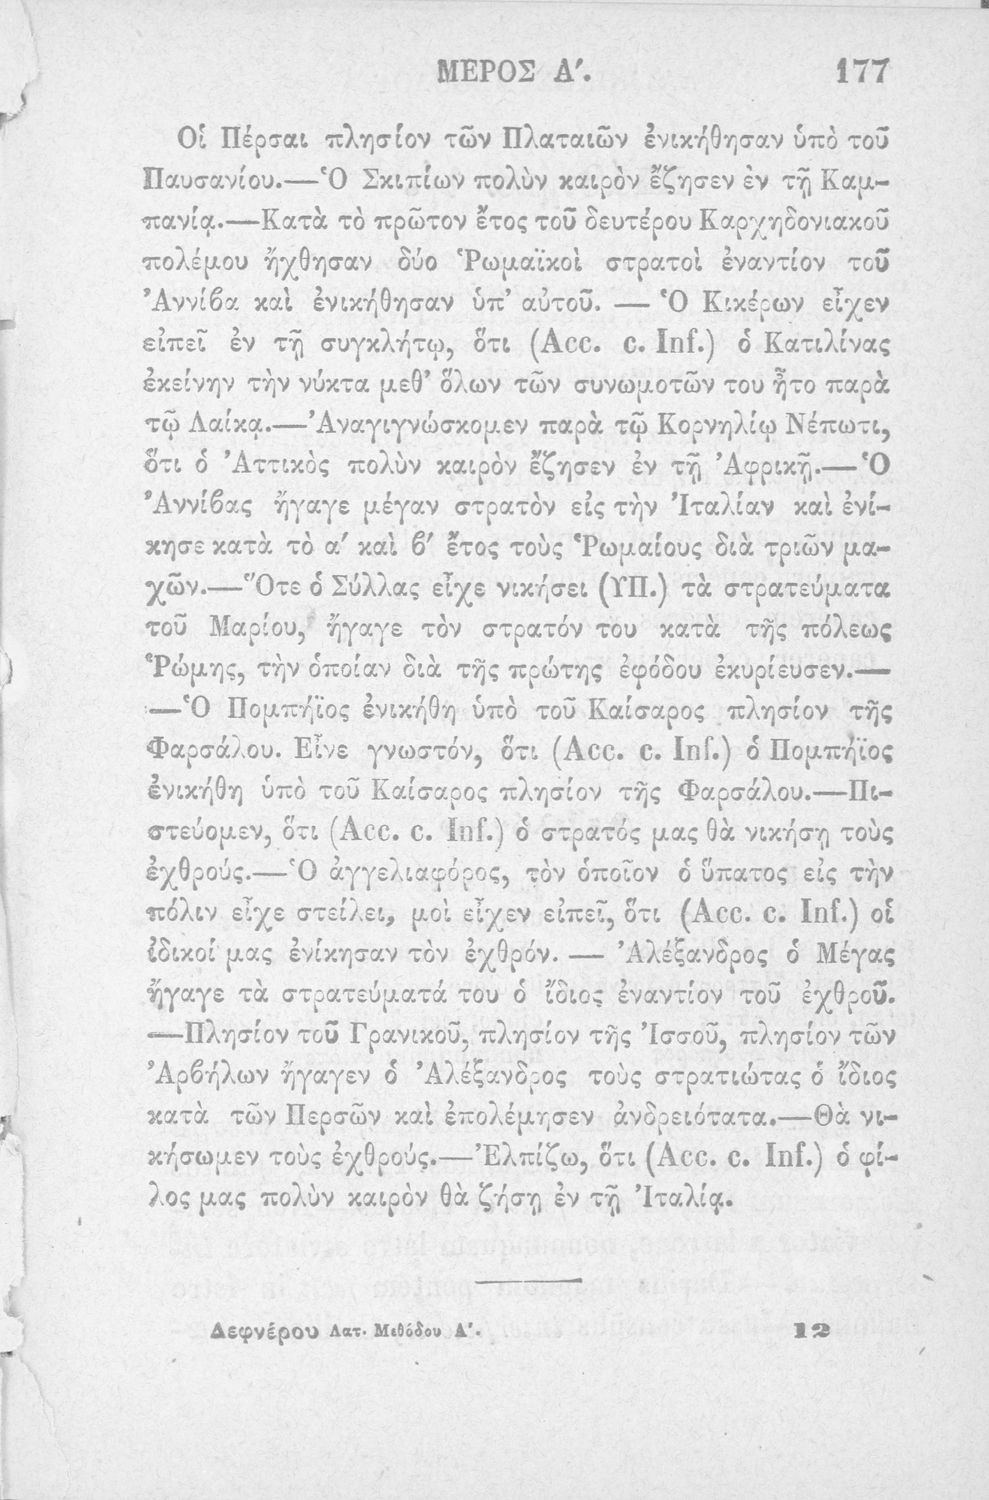 ΜΕΡΟΣ Α΄. 177
Οἱ Πέρσαι πλησίον τῶν Πλαταιῶν ἐνικήθησαν ὑπὸ τοῦ
Παυσανίου.—Ὁ Σκιπίων πολὺν καιρὸν ἔζησεν ἐν τῇ Καμ-
πανίᾳ.—Κατὰ τὸ πρῶτον ἔτος τοῦ δευτέρου Καρχηδονιακοῦ
πολέμου ἤχθησαν δύο Ῥωμαϊκοὶ στρατοὶ ἐναντίον τοῦ
Ἀννίβα καὶ ἐνικήθησαν ὑπ' αὐτοῦ. — Ὁ Κικέρων εἶχεν
εἰπεῖ ἐν τῇ συγκλήτῳ, ὅτι (Acc. c. Inf.) ὁ Κατιλίνας
ἐκείνην τὴν νύκτα μεθ' ὅλων τῶν συνωμοτῶν του ἦτο παρὰ
τῷ Λαίκᾳ.—Ἀναγιγνώσκομεν παρὰ τῷ Κορνηλίῳ Νέπωτι,
ὅτι ὁ Ἀττικὸς πολὺν καιρὸν ἔζησεν ἐν τῇ Ἀφρικῇ.—Ὁ
Ἀννίβας ἤγαγε μέγαν στρατὸν εἰς τὴν Ἰταλίαν καὶ ἐνί-
κησε κατὰ τὸ α΄ καὶ β΄ ἔτος τοὺς Ῥωμαίους διὰ τριῶν μα-
χῶν.—Ὅτε ὁ Σύλλας εἶχε νικήσει (ΥΠ.) τὰ στρατεύματα
τοῦ Μαρίου, ἤγαγε τὸν στρατόν του κατὰ τῆς πόλεως
Ῥώμης, τὴν ὁποίαν διὰ τῆς πρώτης ἐφόδου ἐκυρίευσεν.—
—Ὁ Πομπήϊος ἐνικήθη ὑπὸ τοῦ Καίσαρος πλησίον τῆς
Φαρσάλου. Εἶνε γνωστόν, ὅτι (Acc. c. Inf.) ὁ Πομπήϊος
ἐνικήθη ὑπὸ τοῦ Καίσαρος πλησίον τῆς Φαρσάλου.—Πι-
στεύομεν, ὅτι (Acc. c. Inf.) ὁ στρατός μας θὰ νικήσῃ τοὺς
ἐχθρούς.—Ὁ ἀγγελιαφόρος, τὸν ὁποῖον ὁ ὕπατος εἰς τὴν
πόλιν εἶχε στείλει, μοὶ εἶχεν εἰπεῖ, ὅτι (Acc. c. Inf.) οἱ
ἰδικοί μας ἐνίκησαν τὸν ἐχθρόν. — Ἀλέξανδρος ὁ Μέγας
ἤγαγε τὰ στρατεύματά του ὁ ἴδιος ἐναντίον τοῦ ἐχθροῦ.
—Πλησίον τοῦ Γρανικοῦ, πλησίον τῆς Ἰσσοῦ, πλησίον τῶν
Ἀρβήλων ἤγαγεν ὁ Ἀλέξανδρος τοὺς στρατιώτας ὁ ἴδιος
κατὰ τῶν Περσῶν καὶ ἐπολέμησεν ἀνδρειότατα.—Θὰ νι-
κήσωμεν τοὺς ἐχθρούς.—Ἐλπίζω, ὅτι (Acc. c. Inf.) ὁ φί-
λος μας πολὺν καιρὸν θὰ ζήσῃ ἐν τῇ Ἰταλίᾳ.
Δεφνέρου Λατ. Μεθόδου Α΄. 12